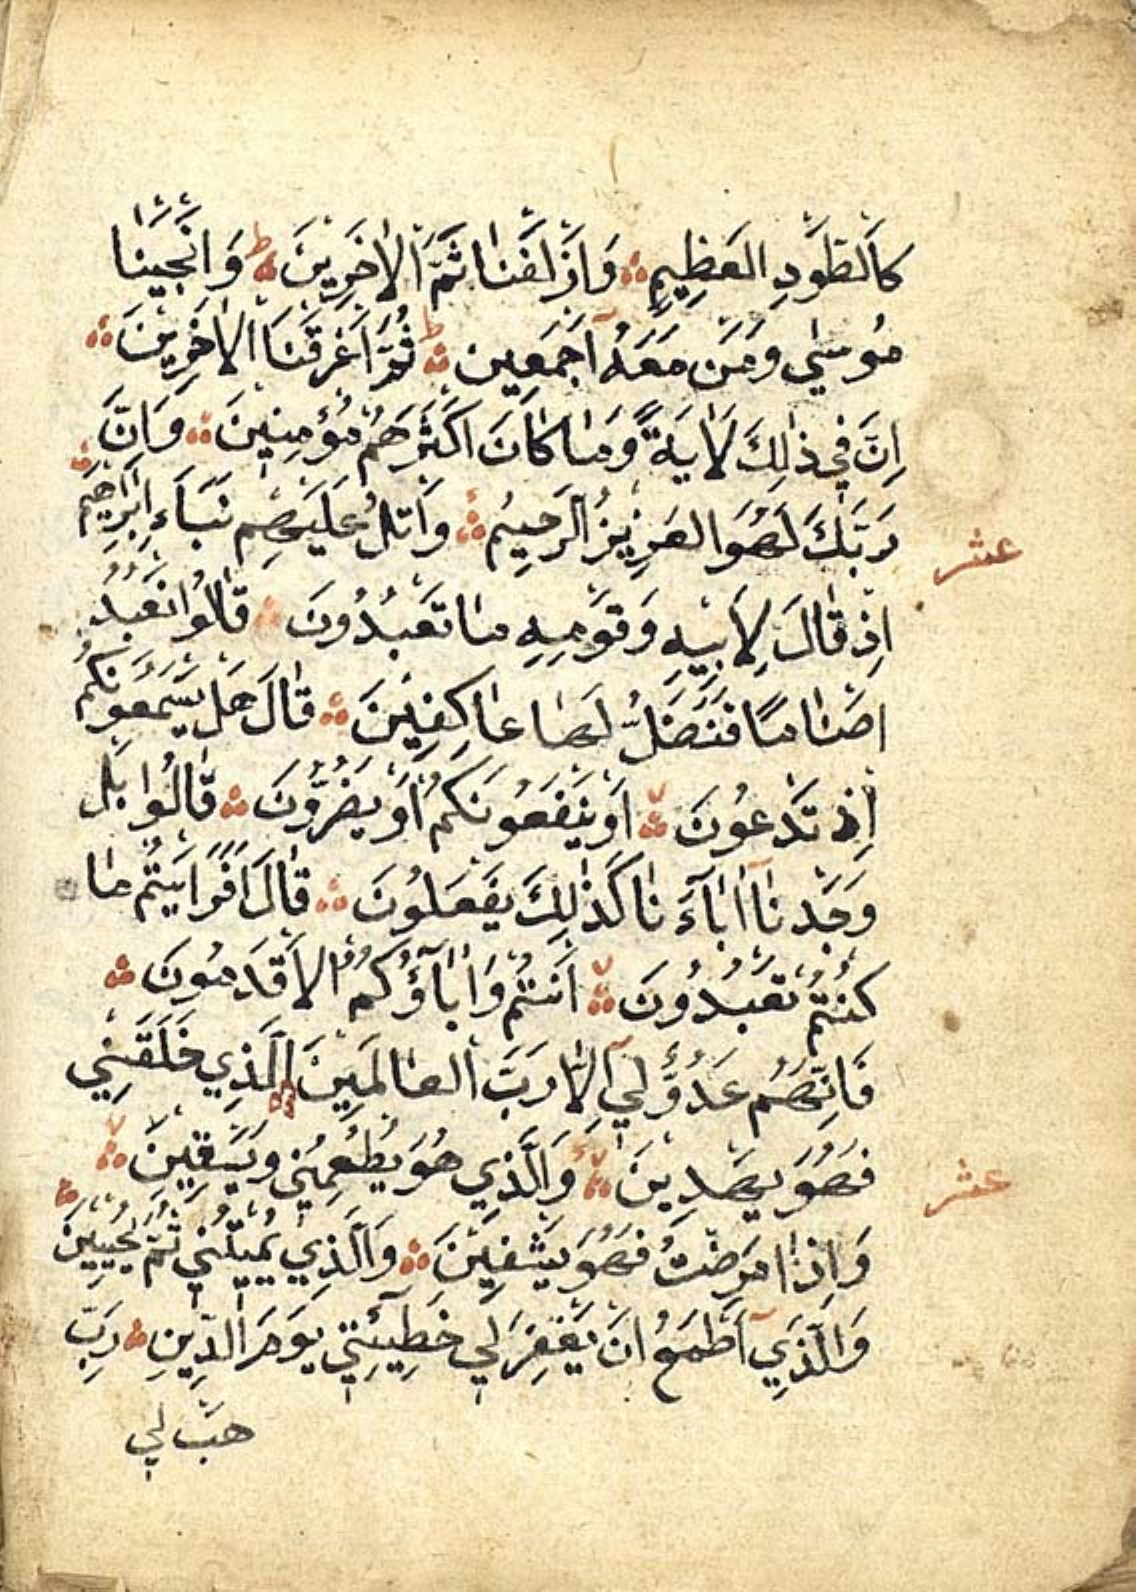 كَالطَّوْدِ الْعَظِيمِ وَاَزْلَفْنَا ثَمَّ الْاٰخَرِينَ ط وَاَنْجَيْنَا
مُوسٰي وَمَنْ مَعَهُ اَجْمَعِين ط ثُمَّ اَغْرَقْنَا الْاٰخَرِينَ
اِنَّ فِي ذٰلِكَ لَاٰيَةً وَمَا كَانَ اَكْثَرُهُمْ مُؤْمِنِينَ وَاِنَّ
رَبَّكَ لَهُوَ الْعَزِيزُ الرَّحِيمُ وَاتْلُ عَلَيْهِم نَبَاَءَ اِبْرٰهِيم
عشر
اِذْ قَالَ لِاَبِيهِ وَقَوْمِهِ مَا تَعْبُدُونَ قَالُوا نَعْبُدُ
اصْنَامًا فَنَضَلُّ لَهَا عَاكِفِينَ قَالَ هَلْ يَسْمَعُونَكُمْ
اِذْ تَدْعُونَ لا اَوْ يَنْفَعُونَكُمْ اَوْ يَضُرُّونَ قَالُوا بَلْ
وَجَدْنَآ اٰبَآءَنَا كَذٰلِكَ يَفْعَلُونَ قَالَ اَفَرَاَيْتُمْ مَا
كُنْتُمْ تَعْبُدُونَ لا اَنْتُمْ وَاٰبَآؤُكُمُ الْاَقْدَمُونَ
فَاِنَّهُمْ عَدُوٌّ لِيٓ اِلَّا رَبَّ الْعَالَمِينَ لا الَّذِي خَلَقَنِي
فَهُوَ يَهْدِينَ لا وَالَّذِي هُوَ يُطْعِمُنِي وَيَسْقِينَ لا
عشر
وَاِذَا مَرِضْتُ فَهُوَ يَشْفِينَ وَالَّذِي يُمِيتُنِي ثُمَّ يُحْيِينَ
وَالَّذِيٓ اَطْمَعُ اَنْ يَغْفِرَ لِي خَطِيئَتِي يَوْمَ الدِّينِ رَبِّ
هَبْ لِي